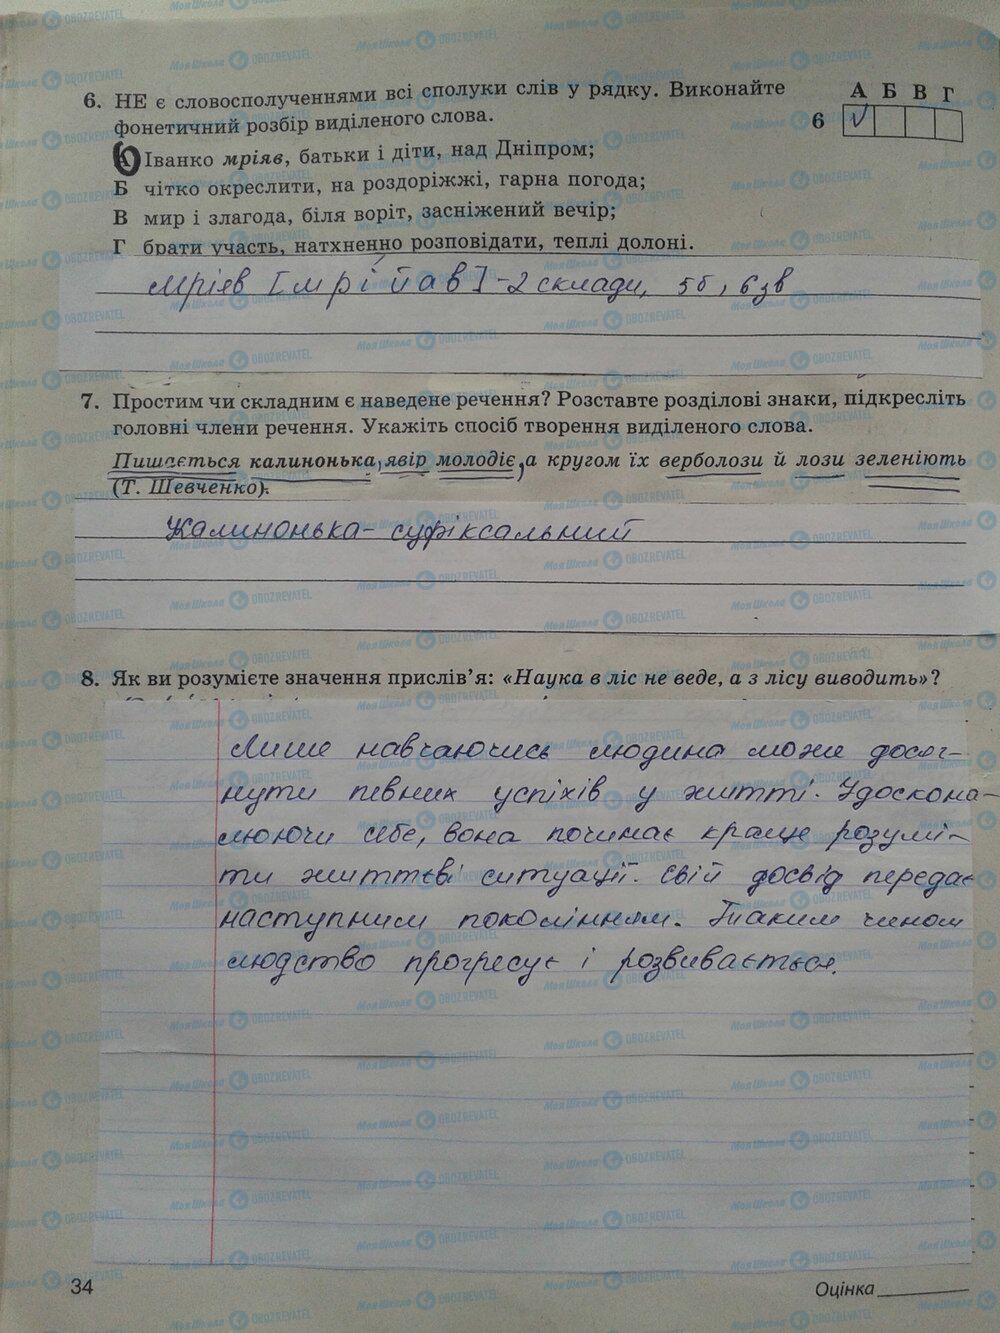 6. НЕ є словосполученнями всі сполуки слів у рядку. Виконайте
фонетичний розбір виділеного слова.
А Б В Г
6
Іванко мріяв, батьки і діти, над Дніпром;
Б чітко окреслити, на роздоріжжі, гарна погода;
В мир і злагода, біля воріт, засніжений вечір;
Г брати участь, натхненно розповідати, теплі долоні.
мріяв [мрійав] - 2 склади, 5б, 6зв
7. Простим чи складним є наведене речення? Розставте розділові знаки, підкресліть
головні члени речення. Укажіть спосіб творення виділеного слова.
Пишається калинонька, явір молодіє, а кругом їх верболози й лози зеленіють
(Т. Шевченко).
Калинонька - суфіксальний
8. Як ви розумієте значення прислів'я: «Наука в ліс не веде, а з лісу виводить»?
Лише навчаючись людина може досяг-
нути певних успіхів у житті. Удоскона-
люючи себе, вона починає краще розумі-
ти життєві ситуації. Свій досвід передає
наступним поколінням. Таким чином
людство прогресує і розвивається.
34
Оцінка
МояШкола OBOZREVATEL